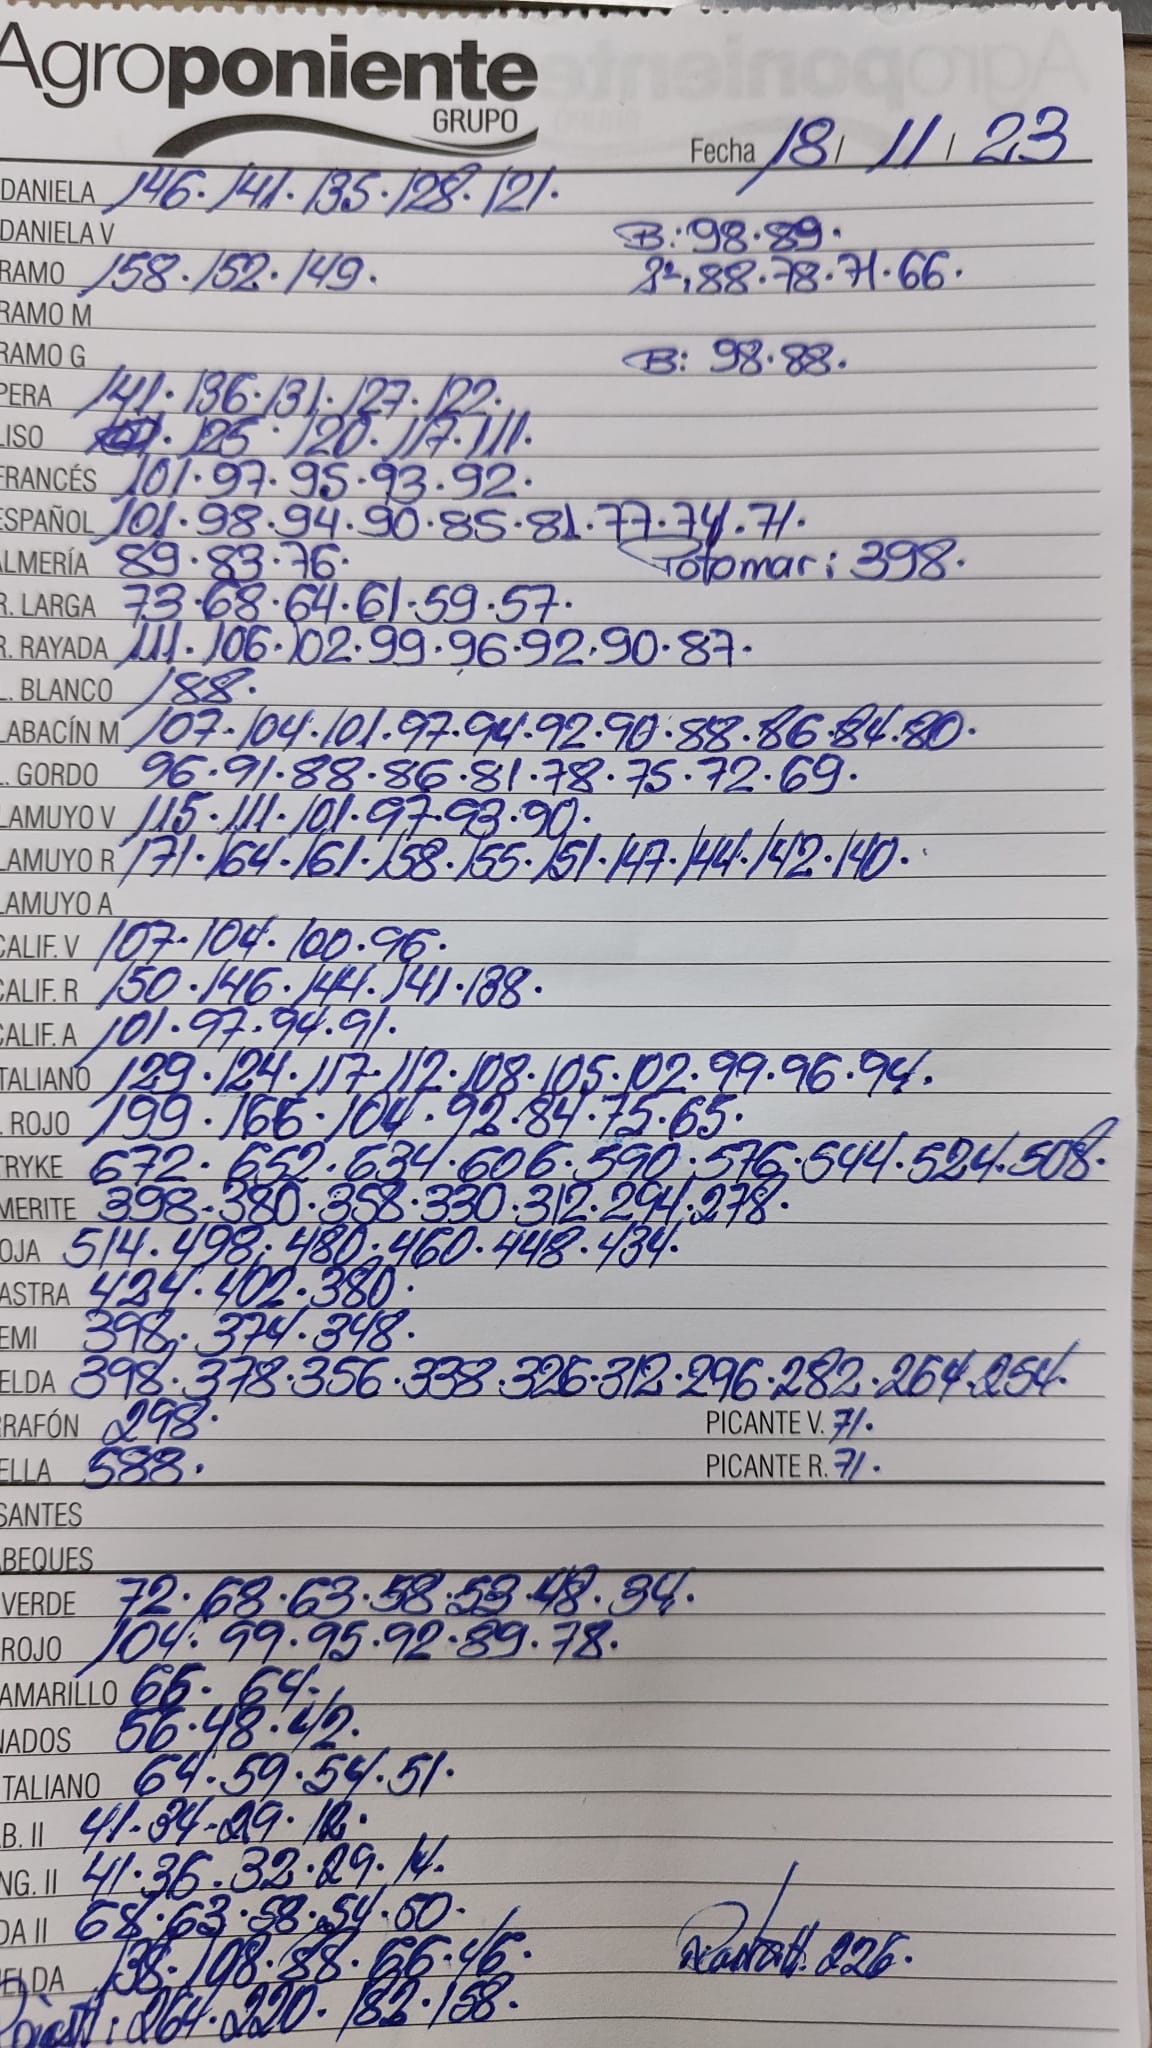 Agroponiente
GRUPO
Fecha 18 / 11 / 23
DANIELA 146. 141. 135. 128. 121.
DANIELA V B: 98. 89.
RAMO 158. 152. 149. 2ª. 88. 78. 71. 66.
RAMO M
RAMO G B: 98. 88.
PERA 141. 136. 131. 127. 122.
LISO 125. 120. 117. 111.
FRANCÉS 101. 97. 95. 93. 92.
ESPAÑOL 101. 98. 94. 90. 85. 81. 77. 74. 71.
ALMERÍA 89. 83. 76. 398.
R. LARGA 73. 68. 64. 61. 59. 57.
R. RAYADA 111. 106. 102. 99. 96. 92. 90. 87.
L. BLANCO 188.
LABACÍN M 107. 104. 101. 97. 94. 92. 90. 88. 86. 84. 80.
L. GORDO 96. 91. 88. 86. 81. 78. 75. 72. 69.
LAMUYO V 115. 111. 101. 97. 93. 90.
LAMUYO R 171. 164. 161. 158. 155. 151. 147. 144. 142. 140.
LAMUYO A
CALIF. V 107. 104. 100. 96.
CALIF. R 150. 146. 144. 141. 138.
CALIF. A 101. 97. 94. 91.
TALIANO 129. 124. 117. 112. 108. 105. 102. 99. 96. 94.
. ROJO 199. 166. 104. 92. 84. 75. 65.
TRYKE 672. 652. 634. 606. 590. 576. 544. 524. 508.
MERITE 398. 380. 358. 330. 312. 294. 278.
OJA 514. 498. 480. 460. 448. 434.
ASTRA 424. 402. 380.
EMI 398. 374. 348.
ELDA 398. 378. 356. 338. 326. 312. 296. 282. 264. 254.
RRAFÓN 298. PICANTE V. 71.
ELLA 588. PICANTE R. 71.
SANTES
ABEQUES
VERDE 72. 68. 63. 58. 53. 48. 34.
ROJO 104. 99. 95. 92. 89. 78.
AMARILLO 66. 64.
NADOS 56. 48. 42.
TALIANO 64. 59. 54. 51.
B. II 41. 34. 29. 12.
NG. II 41. 36. 32. 29. 14.
DA II 68. 63. 58. 54. 50.
ELDA 138. 108. 88. 66. 46. 226.
264. 220. 182. 158.